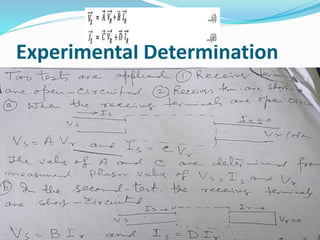 V⃗s = A⃗ V⃗R + B⃗ I⃗R ...(i)
I⃗s = C⃗ V⃗R + D⃗ I⃗R ...(ii)
Experimental Determination
Two tests are applied ① Receiving
are open-circuited ② Receiving ter. are short
ⓐ When the receiving terminals are open circ
Is
Vs
Ir=0
Vr (open
Vs = A Vr and Is = C Vr
The value of A and C are determined from
measured phasor value of Vs, Is and Vr
ⓑ In the second test the receiving terminals
are short-circuited
Is
Ir
Vs
Vr=0
Vs = B Ir and Is = D Ir